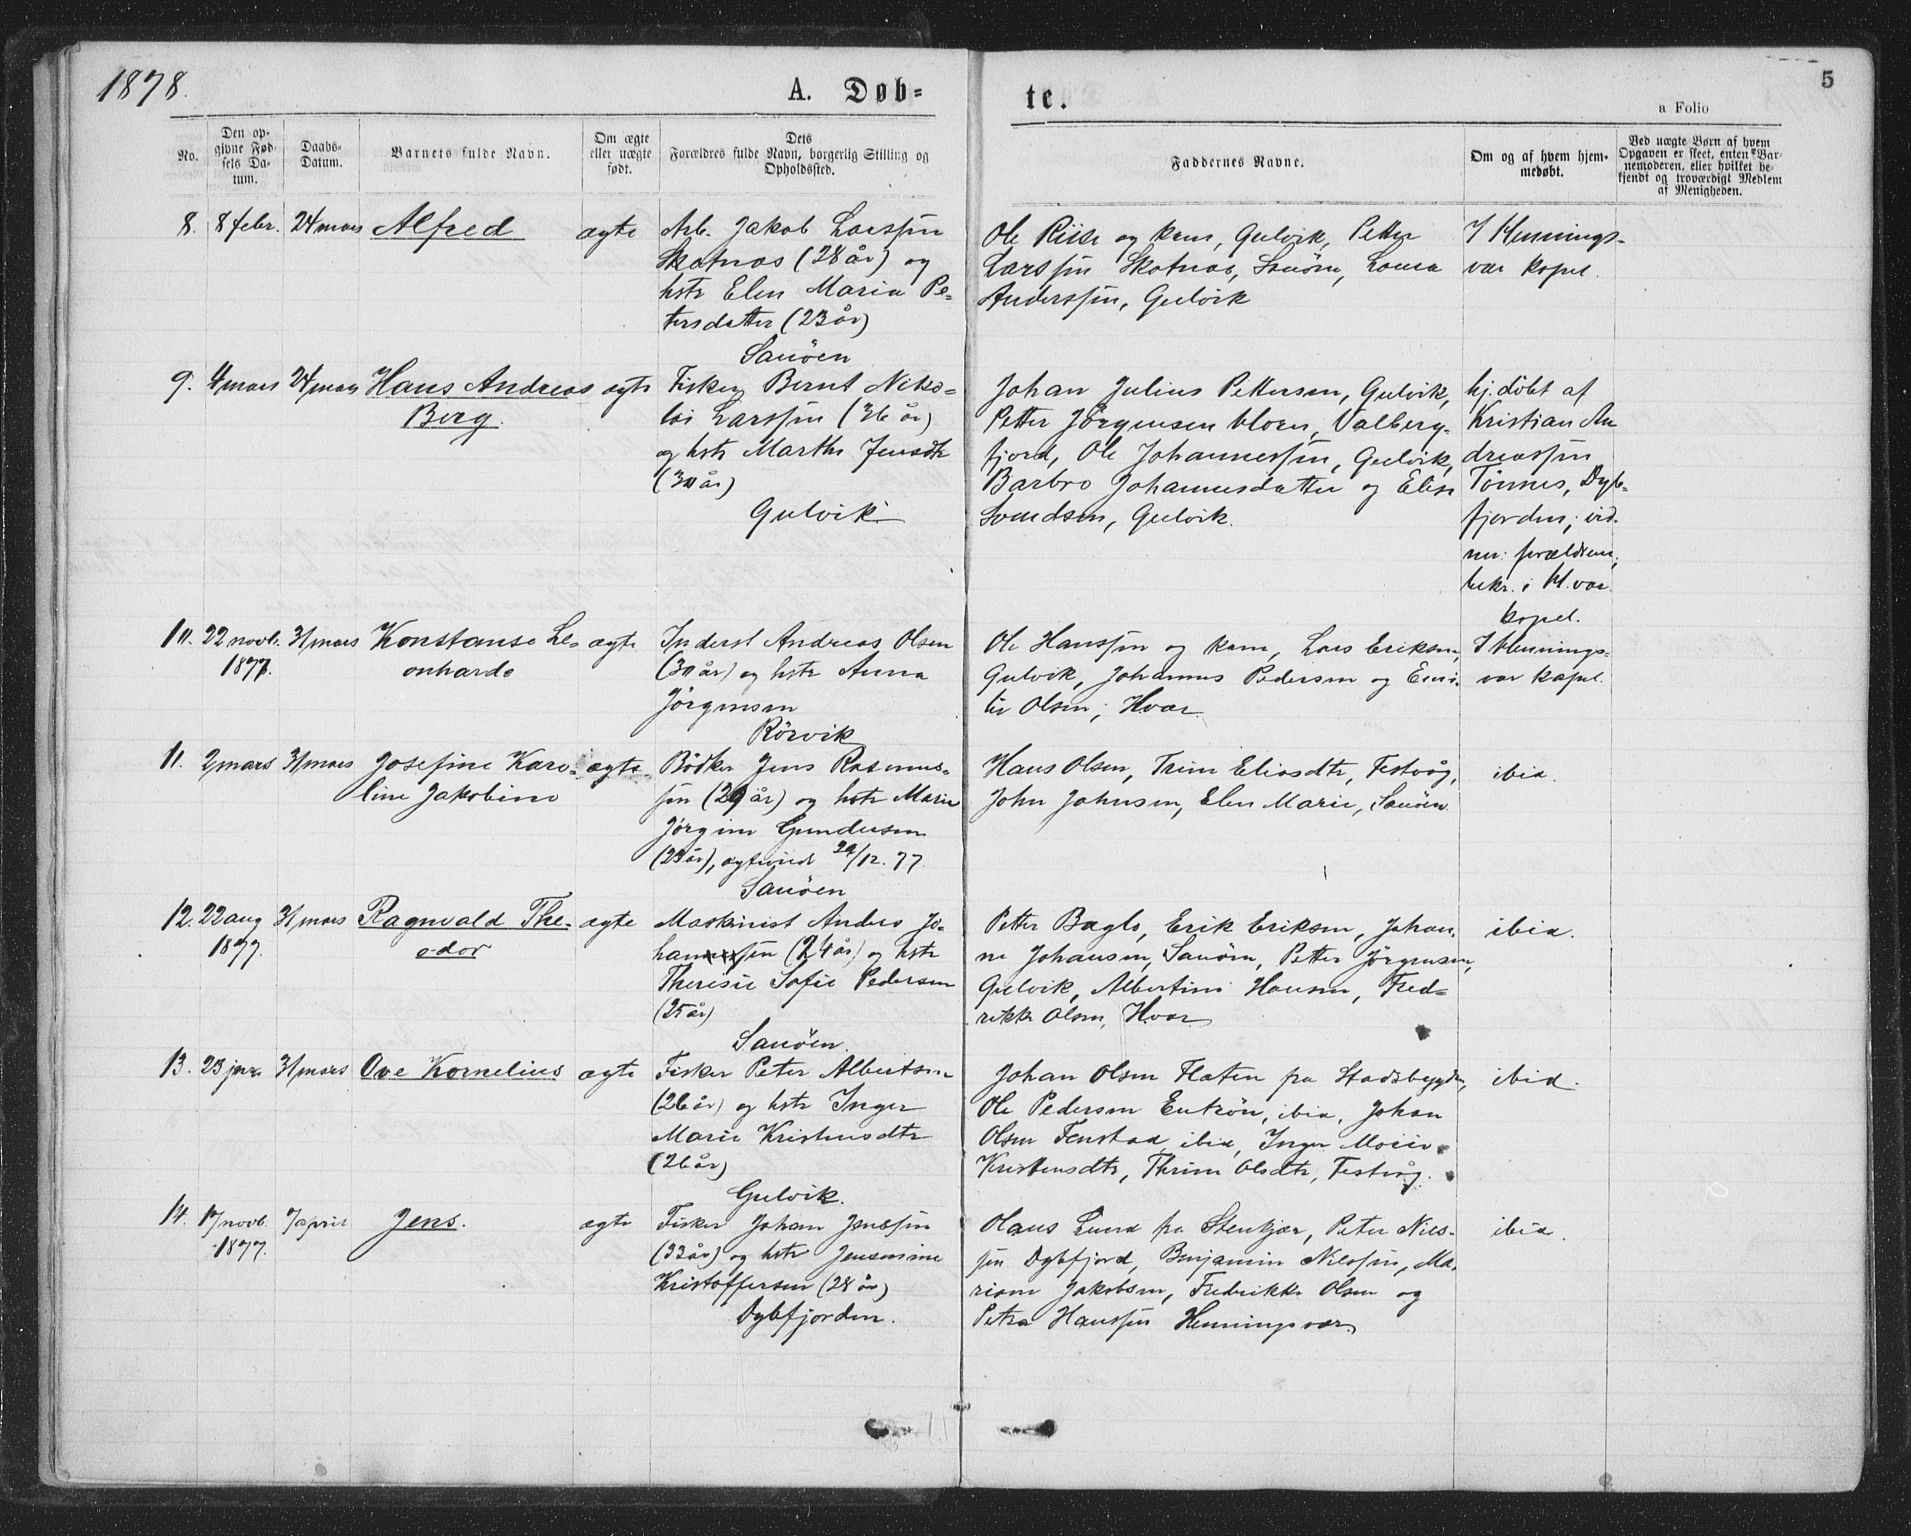 1878.
A. Døb-
te.
5
a Folio
No.
Den op-
givne Fød-
sels Da-
tum.
Daabs-
Datum.
Barnets fulde Navn.
Om ægte
eller uægte
født.
Dets
Forældres fulde Navn, borgerlig Stilling og
Opholdssted.
Faddernes Navne.
Om og af hvem hjem-
medøbt.
Ved uægte Børn af hvem
Opgaven er skeet, enten Bar-
nemoderen, eller hvilket be-
kjendt og troværdigt Medlem
af Menigheden.
8. 8 febr. 24 mars Alfred ægte
Arb. Jakob Larssøn
Skotnæs (28 år) og
hstr Elen Maria Pe-
tersdatter (23 år)
Sauöen
Ole Riise og kone, Gulvik, Petter
Larssøn Skotnæs, Sauöen,
Anderssøn, Gulvik
I Hennings-
vær kapel.
9. 4 mars 24 mars Hans Andreas ægte
Berg.
Fisker Bernt Niko-
lai Larssøn (36 år)
og hstr Marthe Jensdtr
(30 år)
Gulvik
Johan Julius Pettersen, Gulvik,
Petter Jörgensen Valberg-
fjord, Ole Johannessøn, Gulvik,
Barbro Johannesdatter og Elise
Svendsen, Gulvik.
hj.döbt af
Kristian An
dreassøn
Tönnes, Dyb-
fjorden; vid-
ner: forældrene;
bekr. i H.vær
kapel.
10. 22 novb. 31 mars Konstanse Le- ægte
1877. onharde
Inderst Andreas Olsen
(30 år) og hstr Anna
Jörgensen
Rörvik
Ole Hanssøn og kone, Lars Eriksen,
Gulvik, Johannes Pedersen og Emi-
lie Olsen, Hvær
I Hennings-
vær kapel.
11. 2 mars 31 mars Josefine Karo- ægte
line Jakobine
Bödker Jens Rasmus-
søn (29 år) og hstr Marie
Jörgine Gundersen
(23 år), ægteviet 29/12. 77.
Sauöen
Hans Olsen, Trine Eliasdtr, Festvåg,
John Johnsen, Elen Marie, Sauöen
ibid.
12. 22 aug 31 mars Ragnvald The- ægte
1877. odor
Maskinist Anders Jo-
hanssøn (24 år) og hstr
Theresie Sofie Pedersen
(25 år)
Sauöen.
Petter Bagle, Erik Eriksen, Johan-
ne Johansen, Sauöen, Petter Jörgensen,
Gulvik, Albertine Hansen, Fred-
rikke Olsen, Hvær
ibid.
13. 23 jan. 31 mars Ove Kornelius ægte
Fisker Peter Albertsen
(26 år) og hstr Inger
Marie Kristensdtr
(26 år)
Gulvik.
Johan Olsen Flaten fra Stadsbygden,
Ole Pedersen ibid, Johan
Olsen Fenstad ibid, Inger Marie
Kristensdtr, Thrine Olsdtr, Festvåg.
ibid.
14. 17 novb. 7 april Jens. ægte
1877.
Fisker Johan Jenssøn
(33 år) og hstr Jensmine
Kristoffersen (28 år)
Dybfjorden.
Olaus Lund fra Stenkjær, Peter Niels-
søn Dybfjord, Benjamin Nilssøn, Ma-
riane Jakobsen, Fredrikke Olsen og
Petra Hanssøn Henningsvær.
ibid.